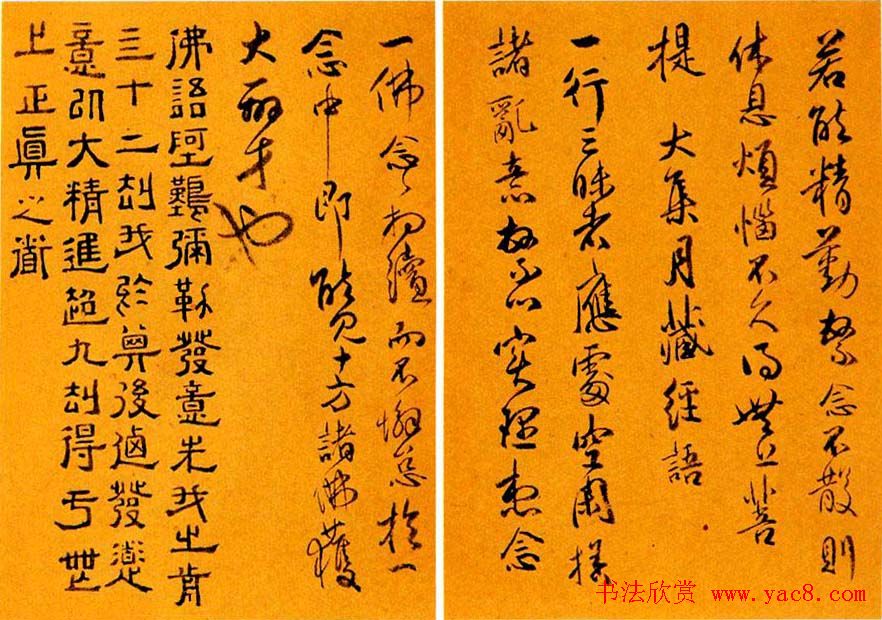 若能精勤繫念不散則
休息煩惱不久得無上菩
提　大集月藏經語
一行三昧者應處空閑捨
諸亂意繫心實理想念
一佛念々相續而不懈怠於一
念中即能見十方諸佛獲
大辯才也
佛語阿難彌勒發意先我之前
三十二劫我於其後迺發道
意以大精進超九劫得于無
上正眞之道
书法欣赏 www.yac8.com